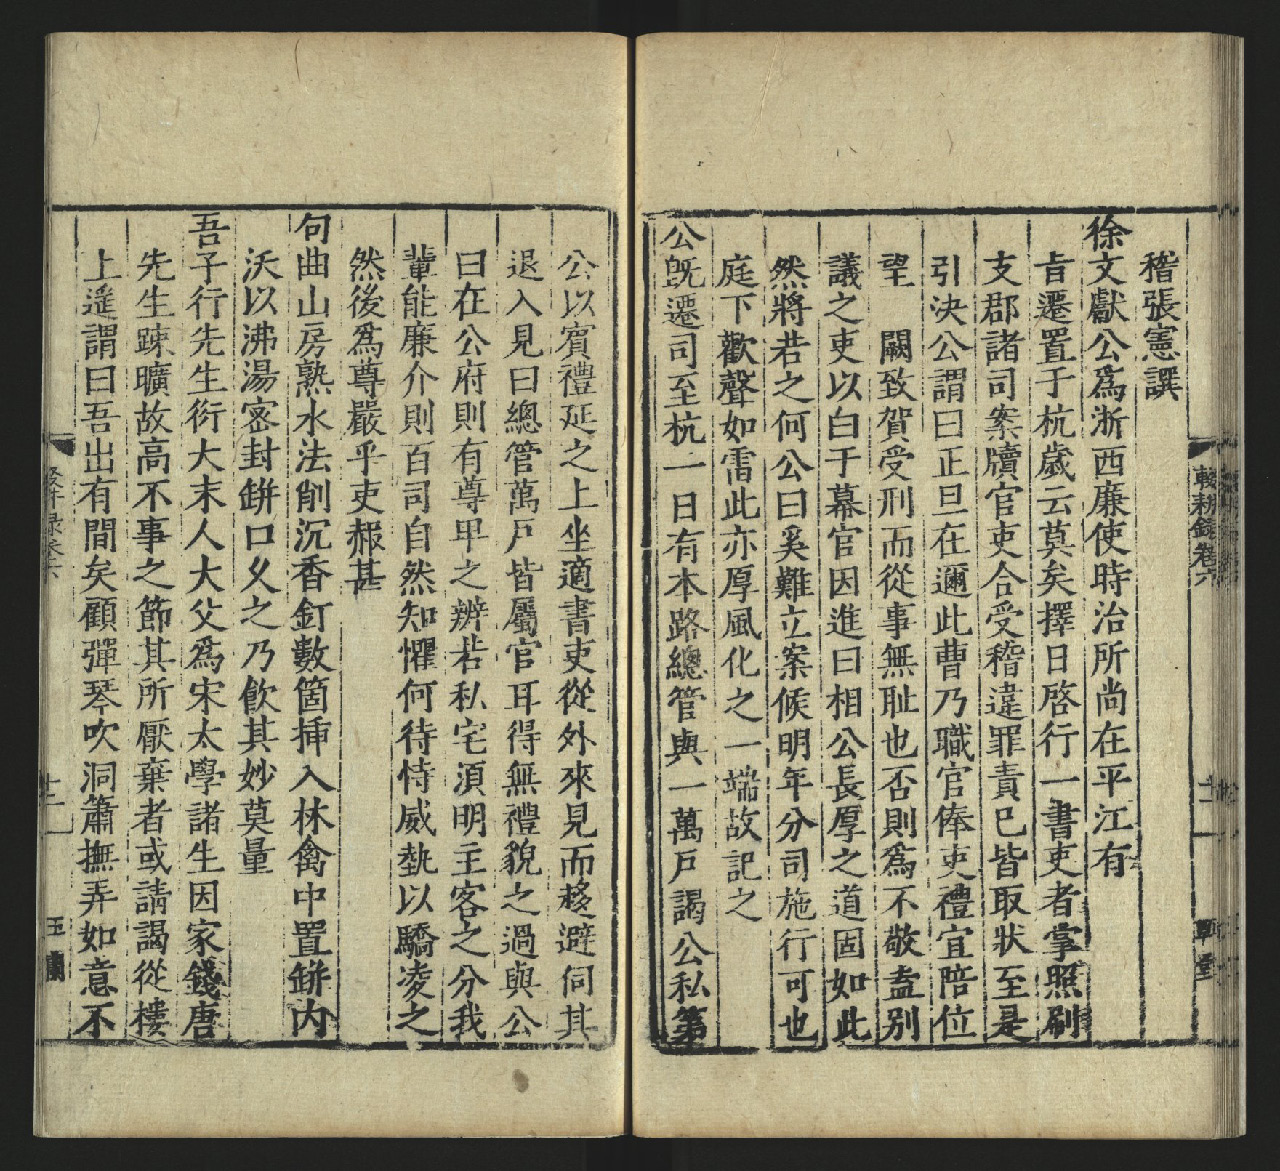 稽張憲譔
徐文獻公爲浙西廉使時治所尚在平江有
旨遷置于杭歲云莫矣擇日啓行一書吏者掌照刷
支郡諸司案牘官吏合受稽違罪責已皆取狀至是
引決公謂曰正旦在邇此曹乃職官俸吏禮宜陪位
望　闕致賀受刑而從事無耻也否則爲不敬盍别
議之吏以白于幕官因進曰相公長厚之道固如此
然將若之何公曰奚難立案候明年分司施行可也
庭下歡聲如雷此亦厚風化之一端故記之
公旣遷司至杭一日有本路總管與一萬戶謁公私第
輟耕錄卷六
公以賓禮延之上坐適書吏從外來見而移避伺其
退入見曰總管萬戶皆屬官耳得無禮貌之過與公
曰在公府則有尊甲之辨若私宅須明主客之分我
輩能廉介則百司自然知懼何待恃威埶以驕凌之
然後爲尊嚴乎吏赧甚
句曲山房熟水法削沉香釘數箇揷入林禽中置缾内
沃以沸湯宻封缾口久之乃飮其妙莫量
吾子行先生衍大末人大父爲宋太學諸生因家錢唐
先生踈曠故高不事之節其所厭棄者或請謁從樓
上遙謂曰吾出有間矣顧彈琴吹洞簫撫弄如意不